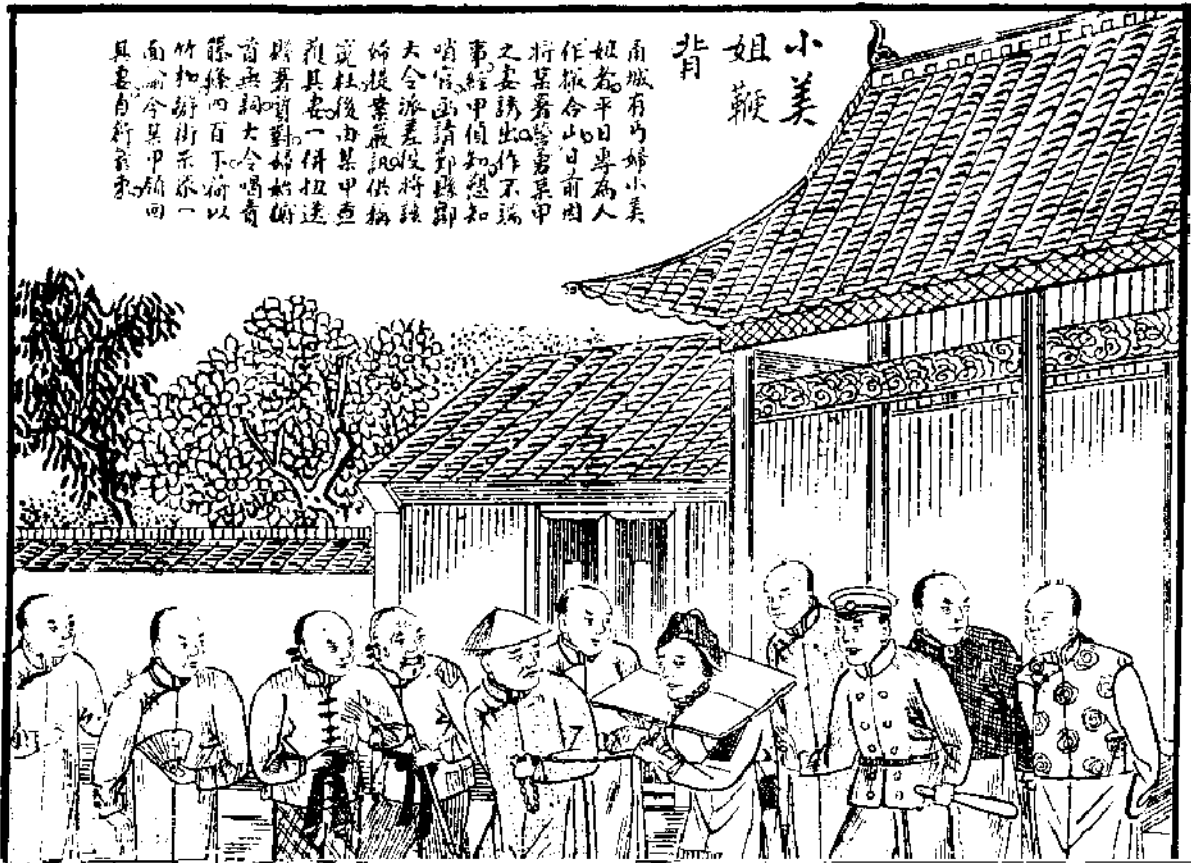 小美
姐鞭
背
南城有丐婦小美
姐者平日專為人
作撮合山日前因
將某署營勇某甲
之妻誘出作不端
事經甲偵知懇知
哨官函請鄞縣鄒
大令派差役將該
婦提案嚴訊供稱
杜後由某甲查
獲其妻一併扭送
縣署質對婦始俯
首無詞大令喝責
藤條百下荷以
竹枷游街示眾一
面諭令某甲領回
其妻自行管束